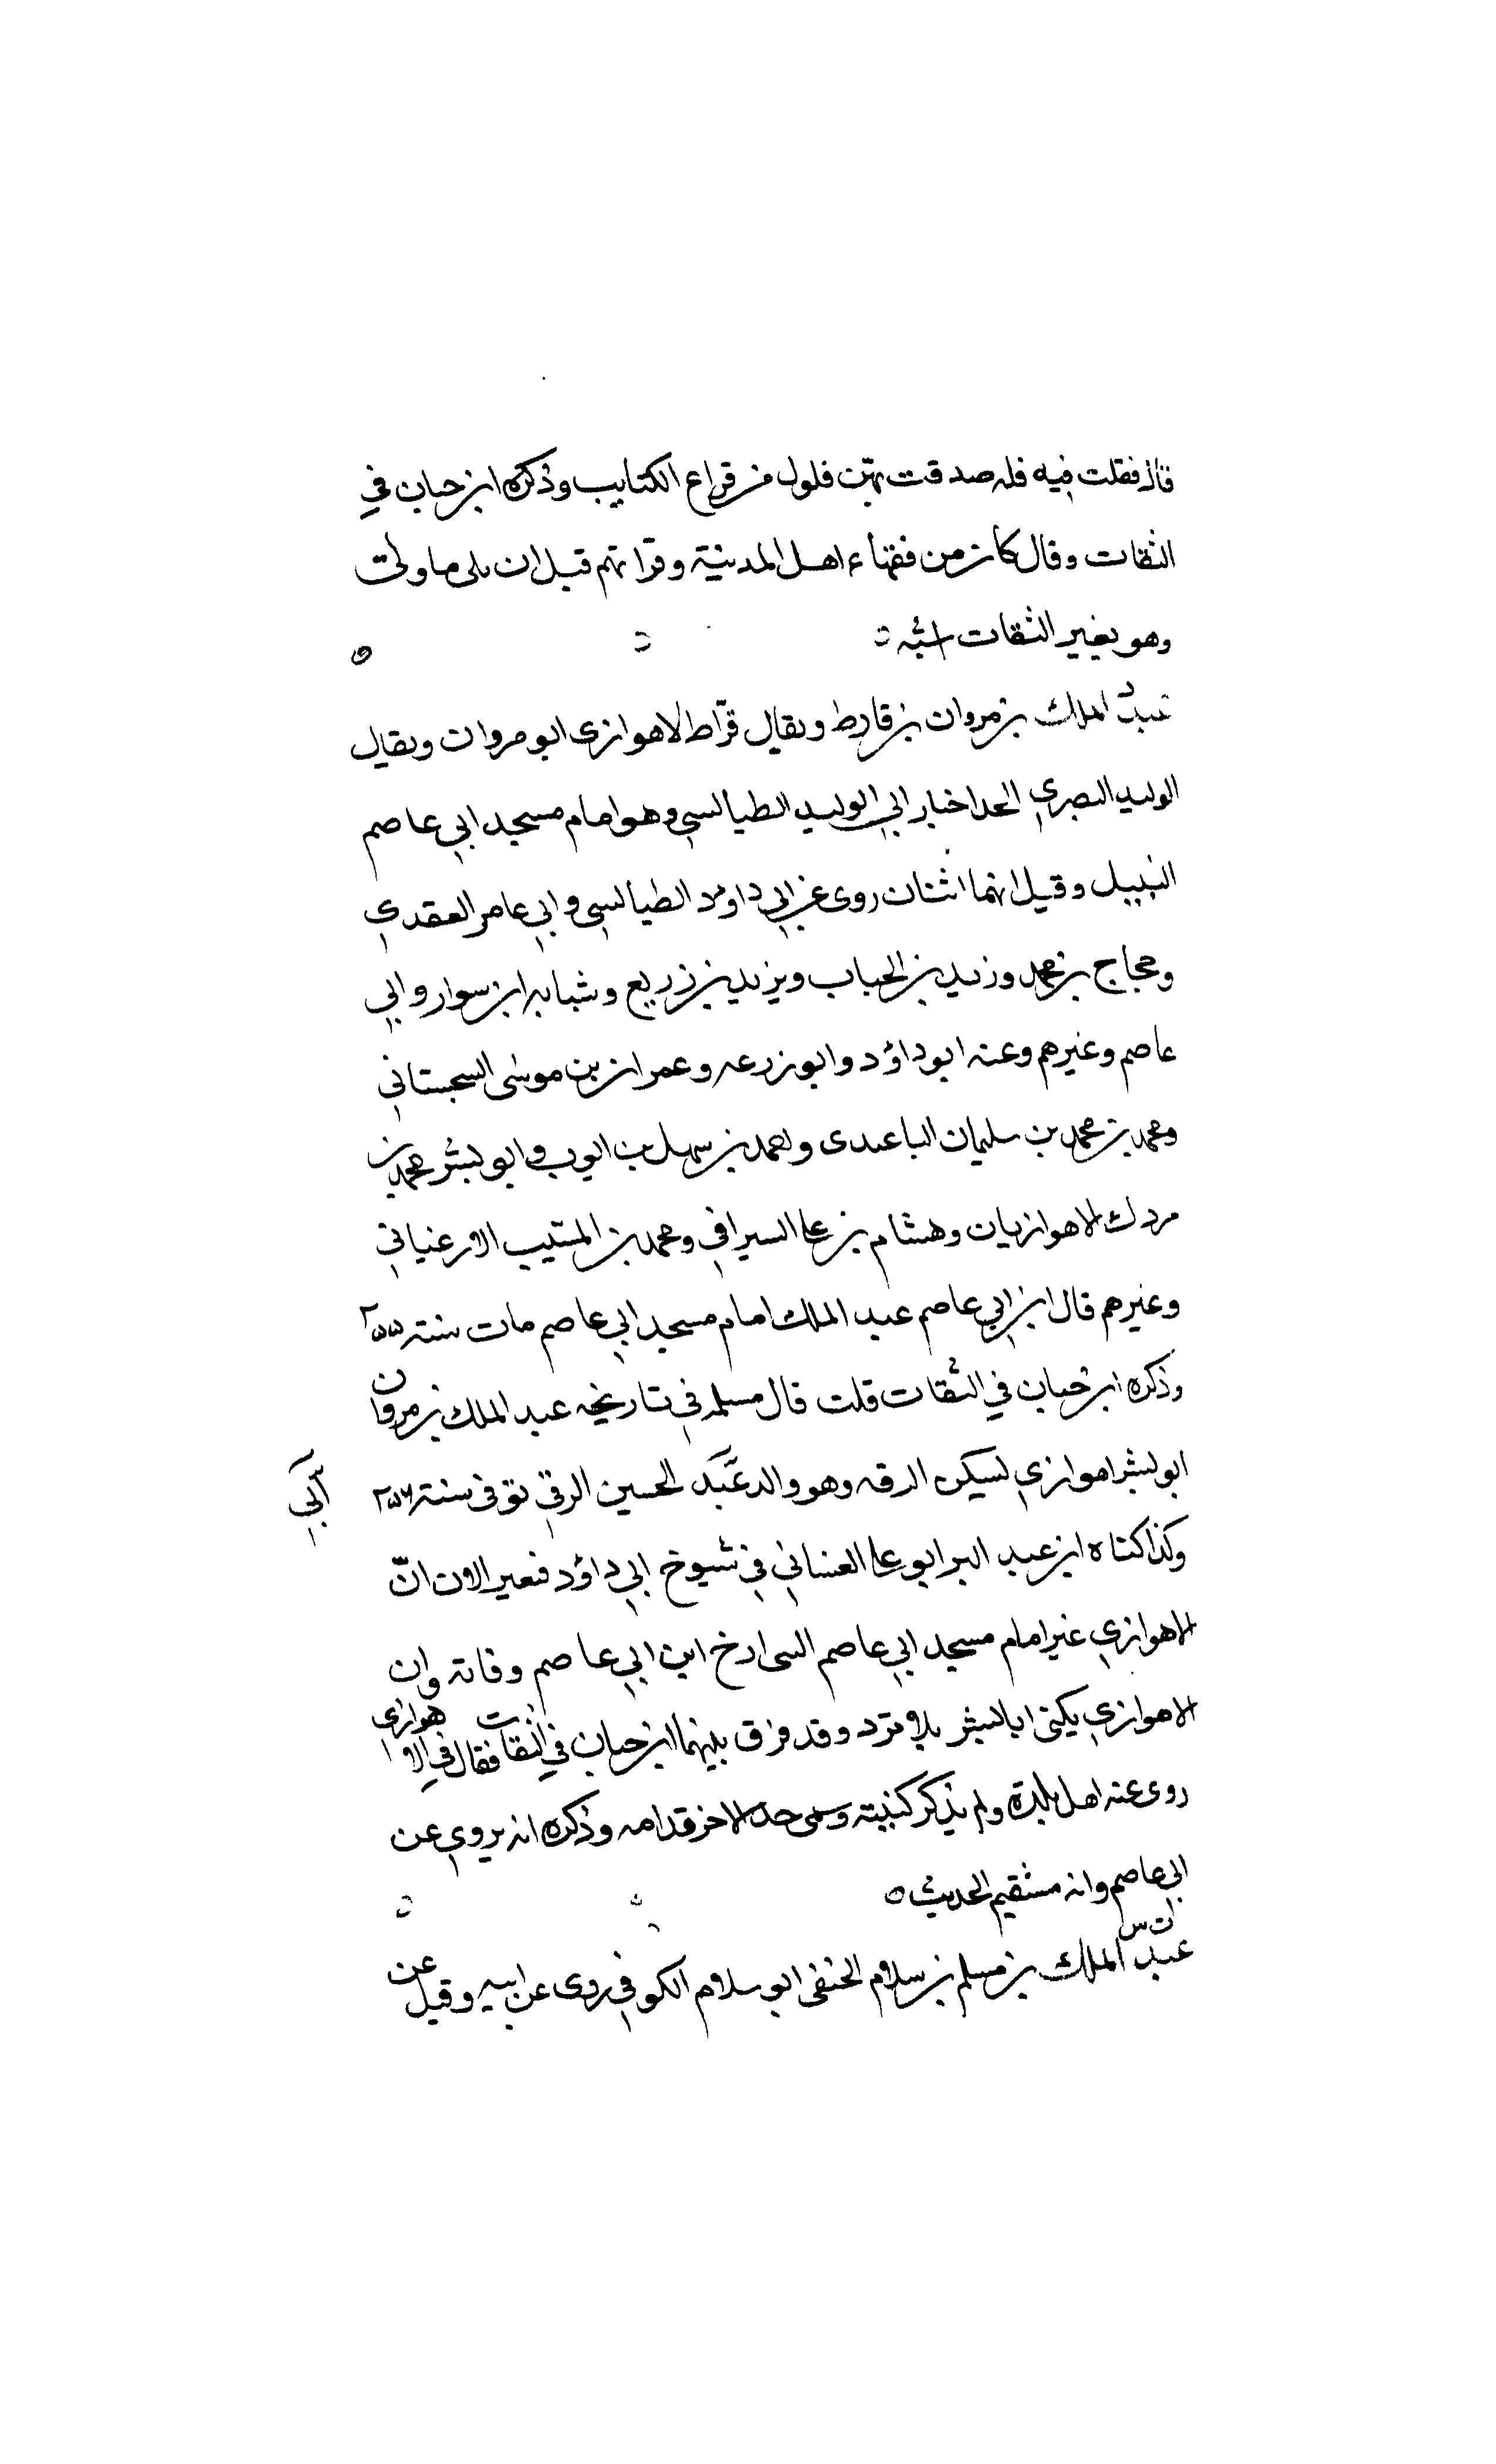 قال فقلت فيه فله صدقت بهن فلول من قراع الكتايب وذكره ابن حبان في
الثقات وقال كان من فقهاء اهل المدينة وقراتهم قبل ان يلى ما ولى
وهو بغير الثقات اشبه
عبد الملك بن مروان بن قارط ويقال قرّاط الاهوازى ابو مروان ويقال
الوليد البصري اخبار ابي الوليد الطيالسي وهو امام مسجد ابي عاصم
النبيل وقيل انهما اثنان روى عن ابي داود الطيالسي وابي عامر العقدي
وحجاج بن محمد وزيد بن الحباب ويزيد بن زريع وشبابه ابن سوار وابي
عاصم وغيرهم وعنه ابو داؤد وابو زرعه وعمران بن موسى السجستاني
ومحمد بن محمد بن سليمان الباغندى واحمد بن سهل بن ايوب وابو بشر محمد بن
مردك الاهوازيان وهشام بن على السيرافي ومحمد بن المسيب الارغيانى
وغيرهم قال ابن ابي عاصم عبد الملك امام مسجد ابي عاصم مات سنة ٢٥٥
وذكره ابن حبان في الثقات قلت قال مسلمه في تاريخه عبد الملك بن مروان
ابو بشر اهوازي سكن الرقه وهو والد عبد الحسين الرقي توفى سنة ٢٥٦ ابي
وكذا كناه ابن عبد البر ابو على الغسانى في شيوخ ابي داؤد فتعين الان انّ
الاهوازي غير امام مسجد ابي عاصم الذى ارخ ابن ابي عاصم وفاته وان
الاهوازي يكنى ابا بشر بلا تردد وقد فرق بينهما ابن حبان في الثقات فقال في الاهوازي
روى عنه اهل بلده ولم يذكر كنيته وسمى جد الاخر قدامه وذكره انه يروي عن
ابي عاصم وانه مستقيم الحديث
ت س
عبد الملك بن مسلم بن سلام الحنفى ابو سلام الكوفي روى عن ابيه وقيل عن